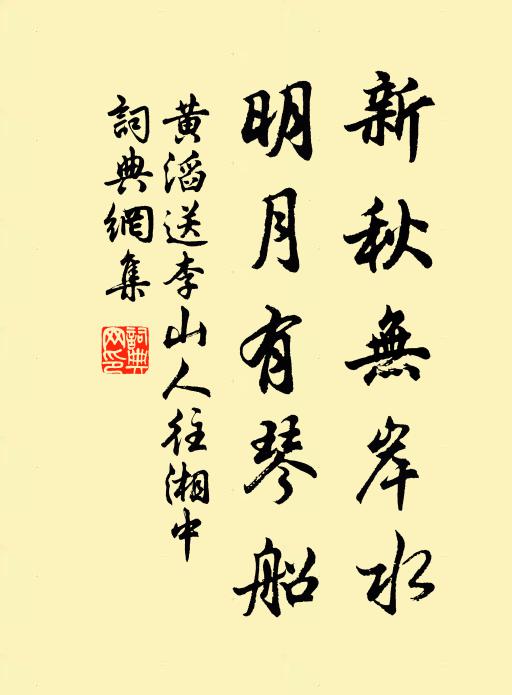 新秋無岸水
明月有琴船
黄滔送李山人往湘中
詞典網集
詞典
网印